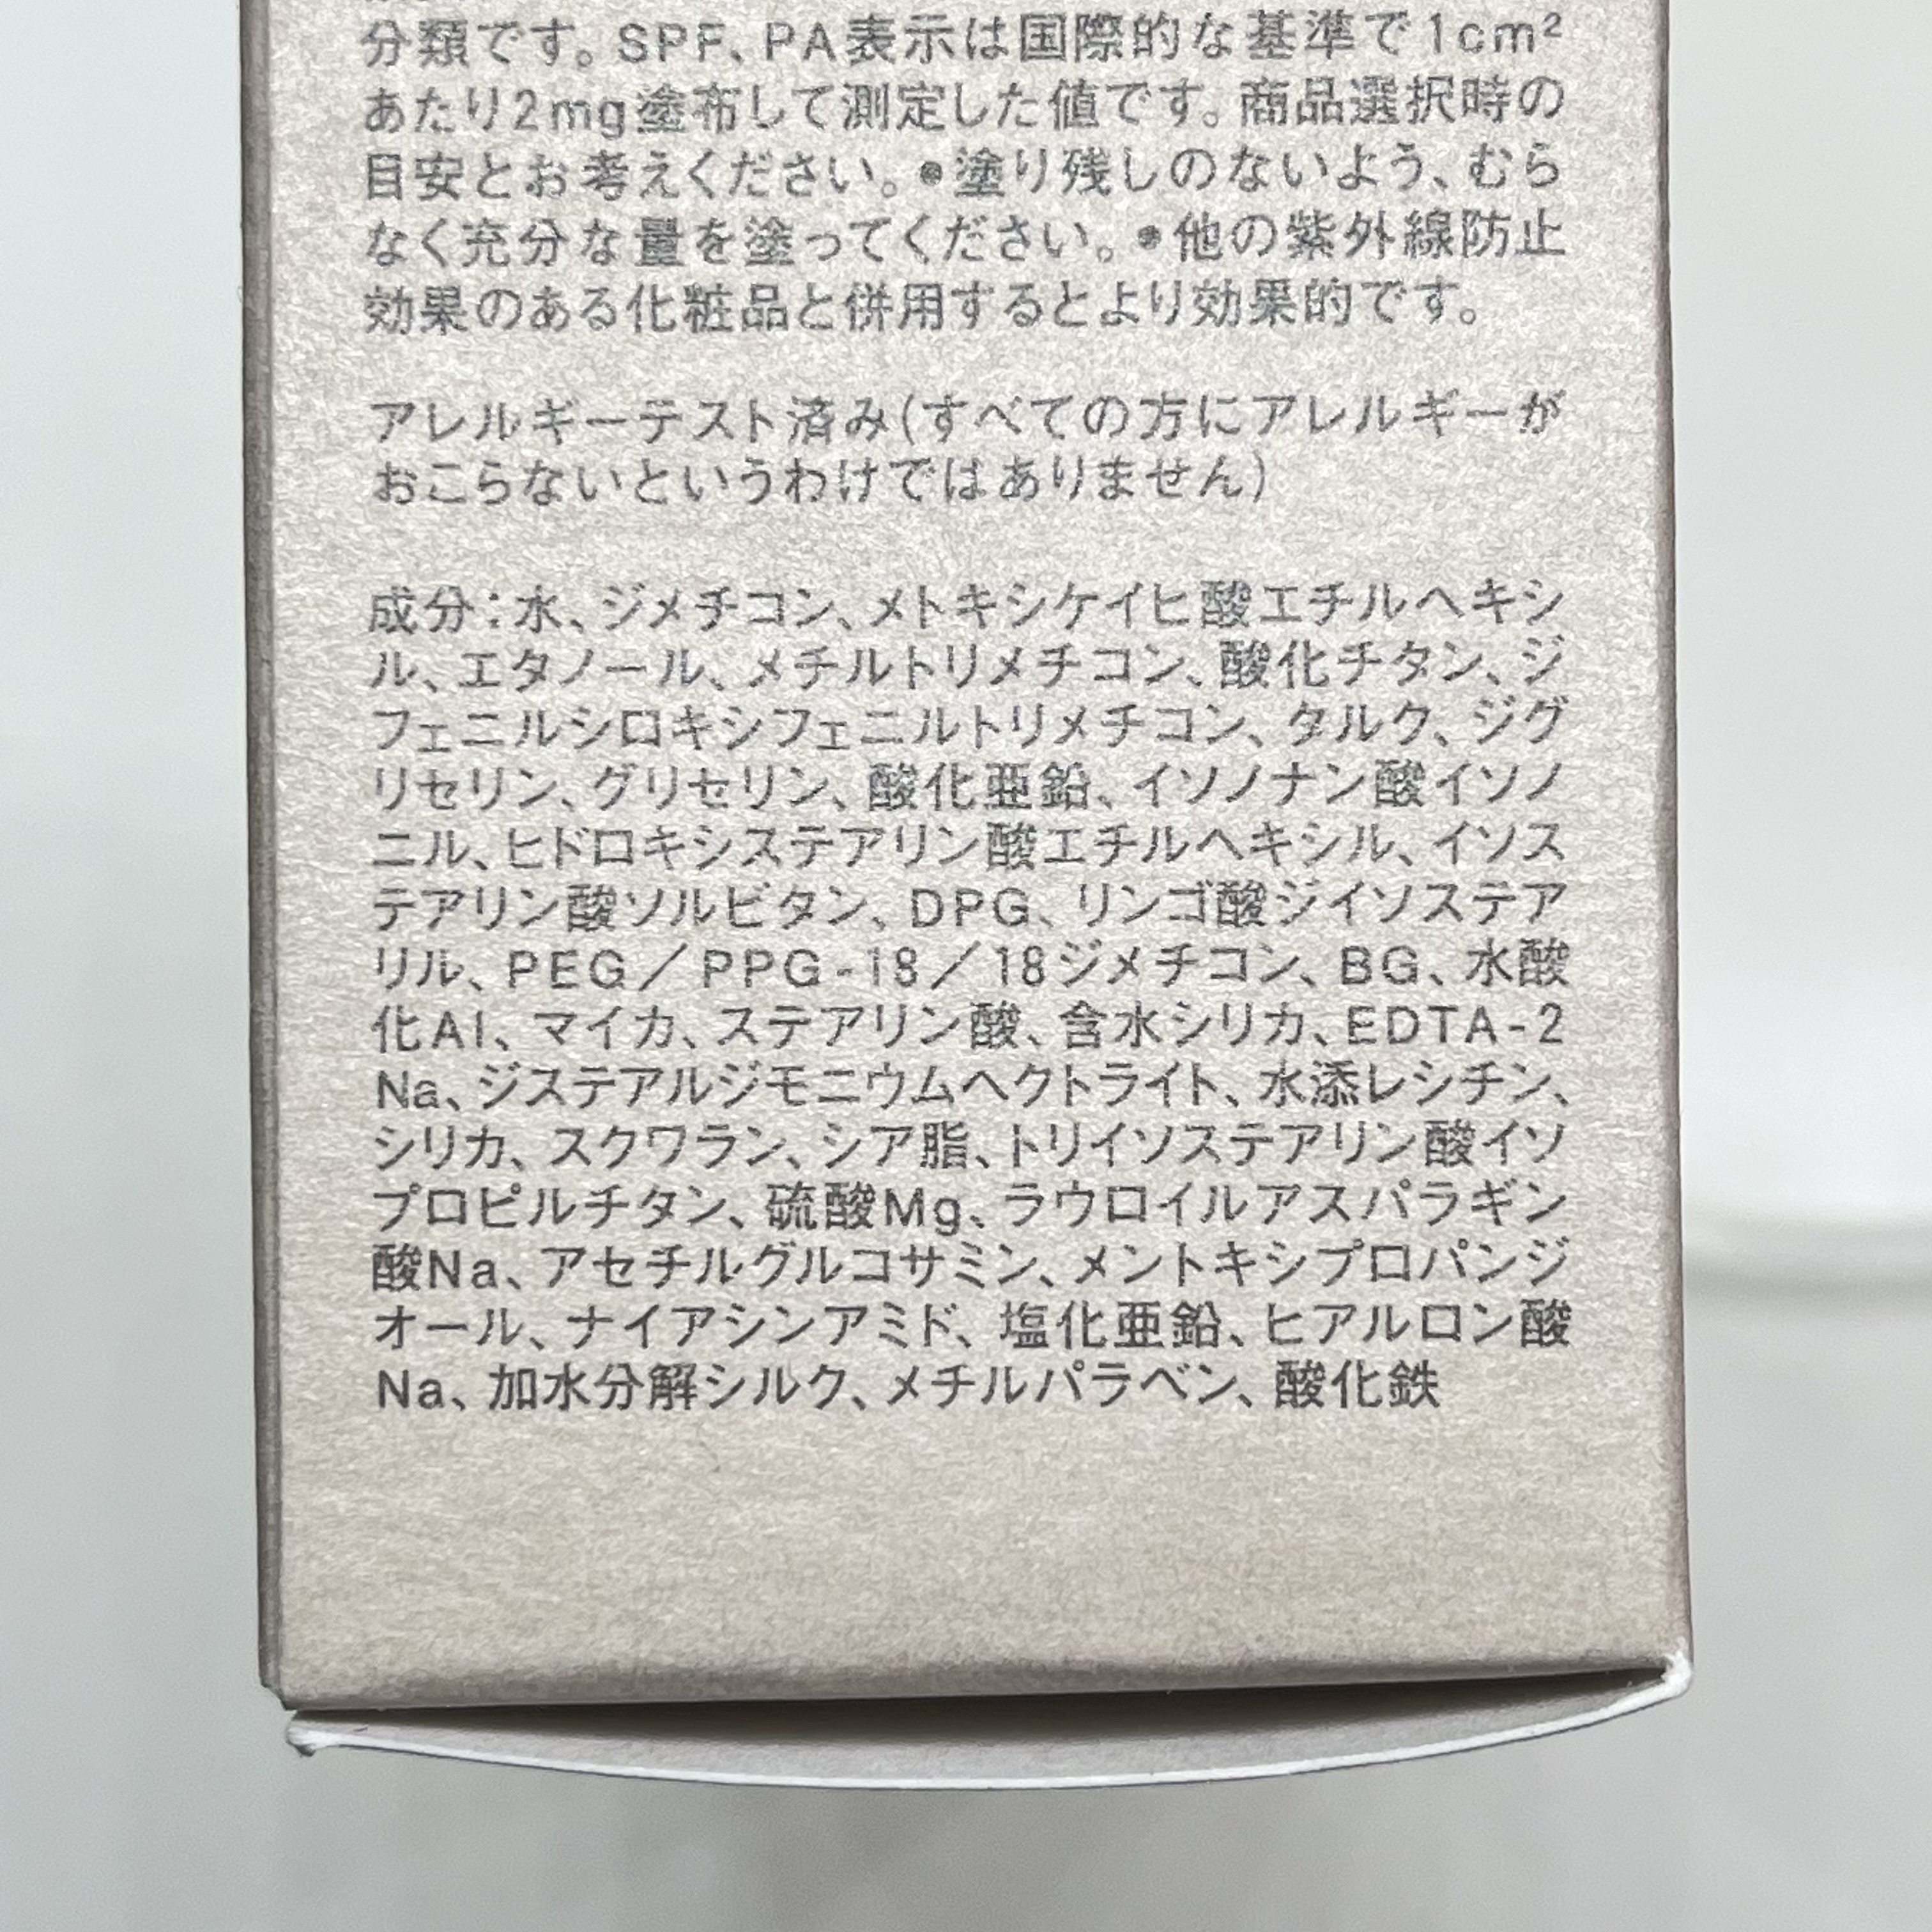 分類です。SPF、PA表示は国際的な基準で1cm²
あたり2mg塗布して測定した値です。商品選択時の
目安とお考えください。●塗り残しのないよう、むら
なく充分な量を塗ってください。●他の紫外線防止
効果のある化粧品と併用するとより効果的です。
アレルギーテスト済み(すべての方にアレルギーが
おこらないというわけではありません)
成分：水、ジメチコン、メトキシケイヒ酸エチルヘキシ
ル、エタノール、メチルトリメチコン、酸化チタン、ジ
フェニルシロキシフェニルトリメチコン、タルク、ジグ
リセリン、グリセリン、酸化亜鉛、イソノナン酸イソノ
ニル、ヒドロキシステアリン酸エチルヘキシル、イソス
テアリン酸ソルビタン、DPG、リンゴ酸ジイソステア
リル、PEG／PPG-18／18ジメチコン、BG、水酸
化Al、マイカ、ステアリン酸、含水シリカ、EDTA-2
Na、ジステアルジモニウムヘクトライト、水添レシチン、
シリカ、スクワラン、シア脂、トリイソステアリン酸イソ
プロピルチタン、硫酸Mg、ラウロイルアスパラギン
酸Na、アセチルグルコサミン、メントキシプロパンジ
オール、ナイアシンアミド、塩化亜鉛、ヒアルロン酸
Na、加水分解シルク、メチルパラベン、酸化鉄